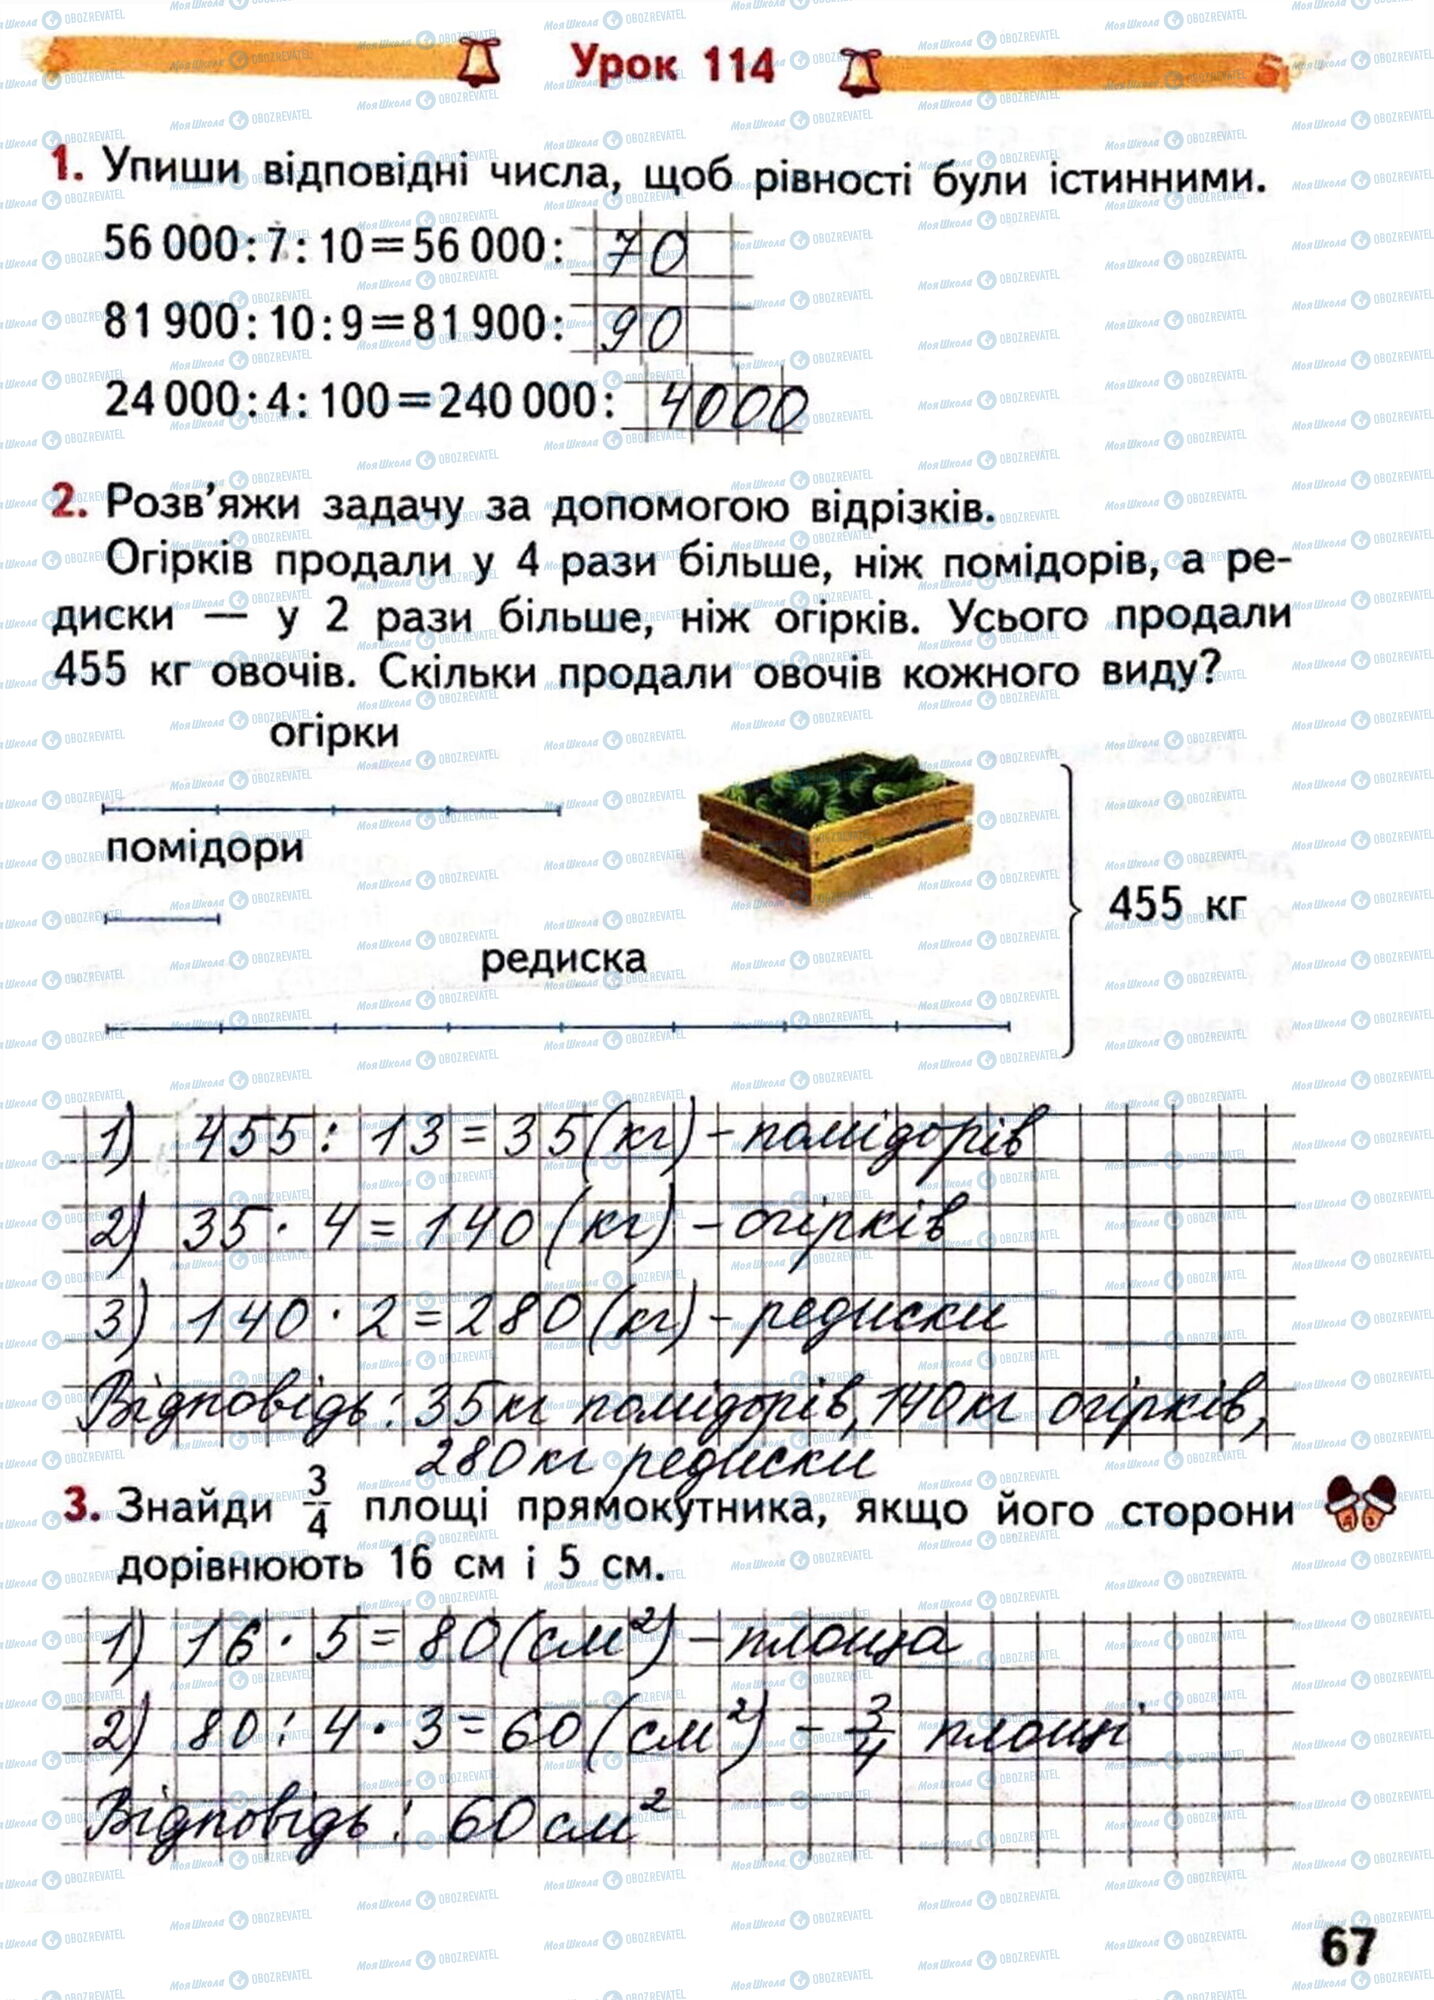 Урок 114
1. Упиши відповідні числа, щоб рівності були істинними.
56 000 : 7 : 10 = 56 000 : 70
81 900 : 10 : 9 = 81 900 : 90
24 000 : 4 : 100 = 240 000 : 4000
2. Розв’яжи задачу за допомогою відрізків.
Огірків продали у 4 рази більше, ніж помідорів, а ре-
диски — у 2 рази більше, ніж огірків. Усього продали
455 кг овочів. Скільки продали овочів кожного виду?
огірки
помідори
455 кг
редиска
1) 455 : 13 = 35 (кг) - помідорів
2) 35 · 4 = 140 (кг) - огірків
3) 140 · 2 = 280 (кг) - редиски
Відповідь: 35 кг помідорів, 140 кг огірків,
280 кг редиски
3. Знайди 3/4 площі прямокутника, якщо його сторони
дорівнюють 16 см і 5 см.
1) 16 · 5 = 80 (см²) - площа
2) 80 : 4 · 3 = 60 (см²) - 3/4 площі
Відповідь: 60 см²
67
МояШкола OBOZREVATEL